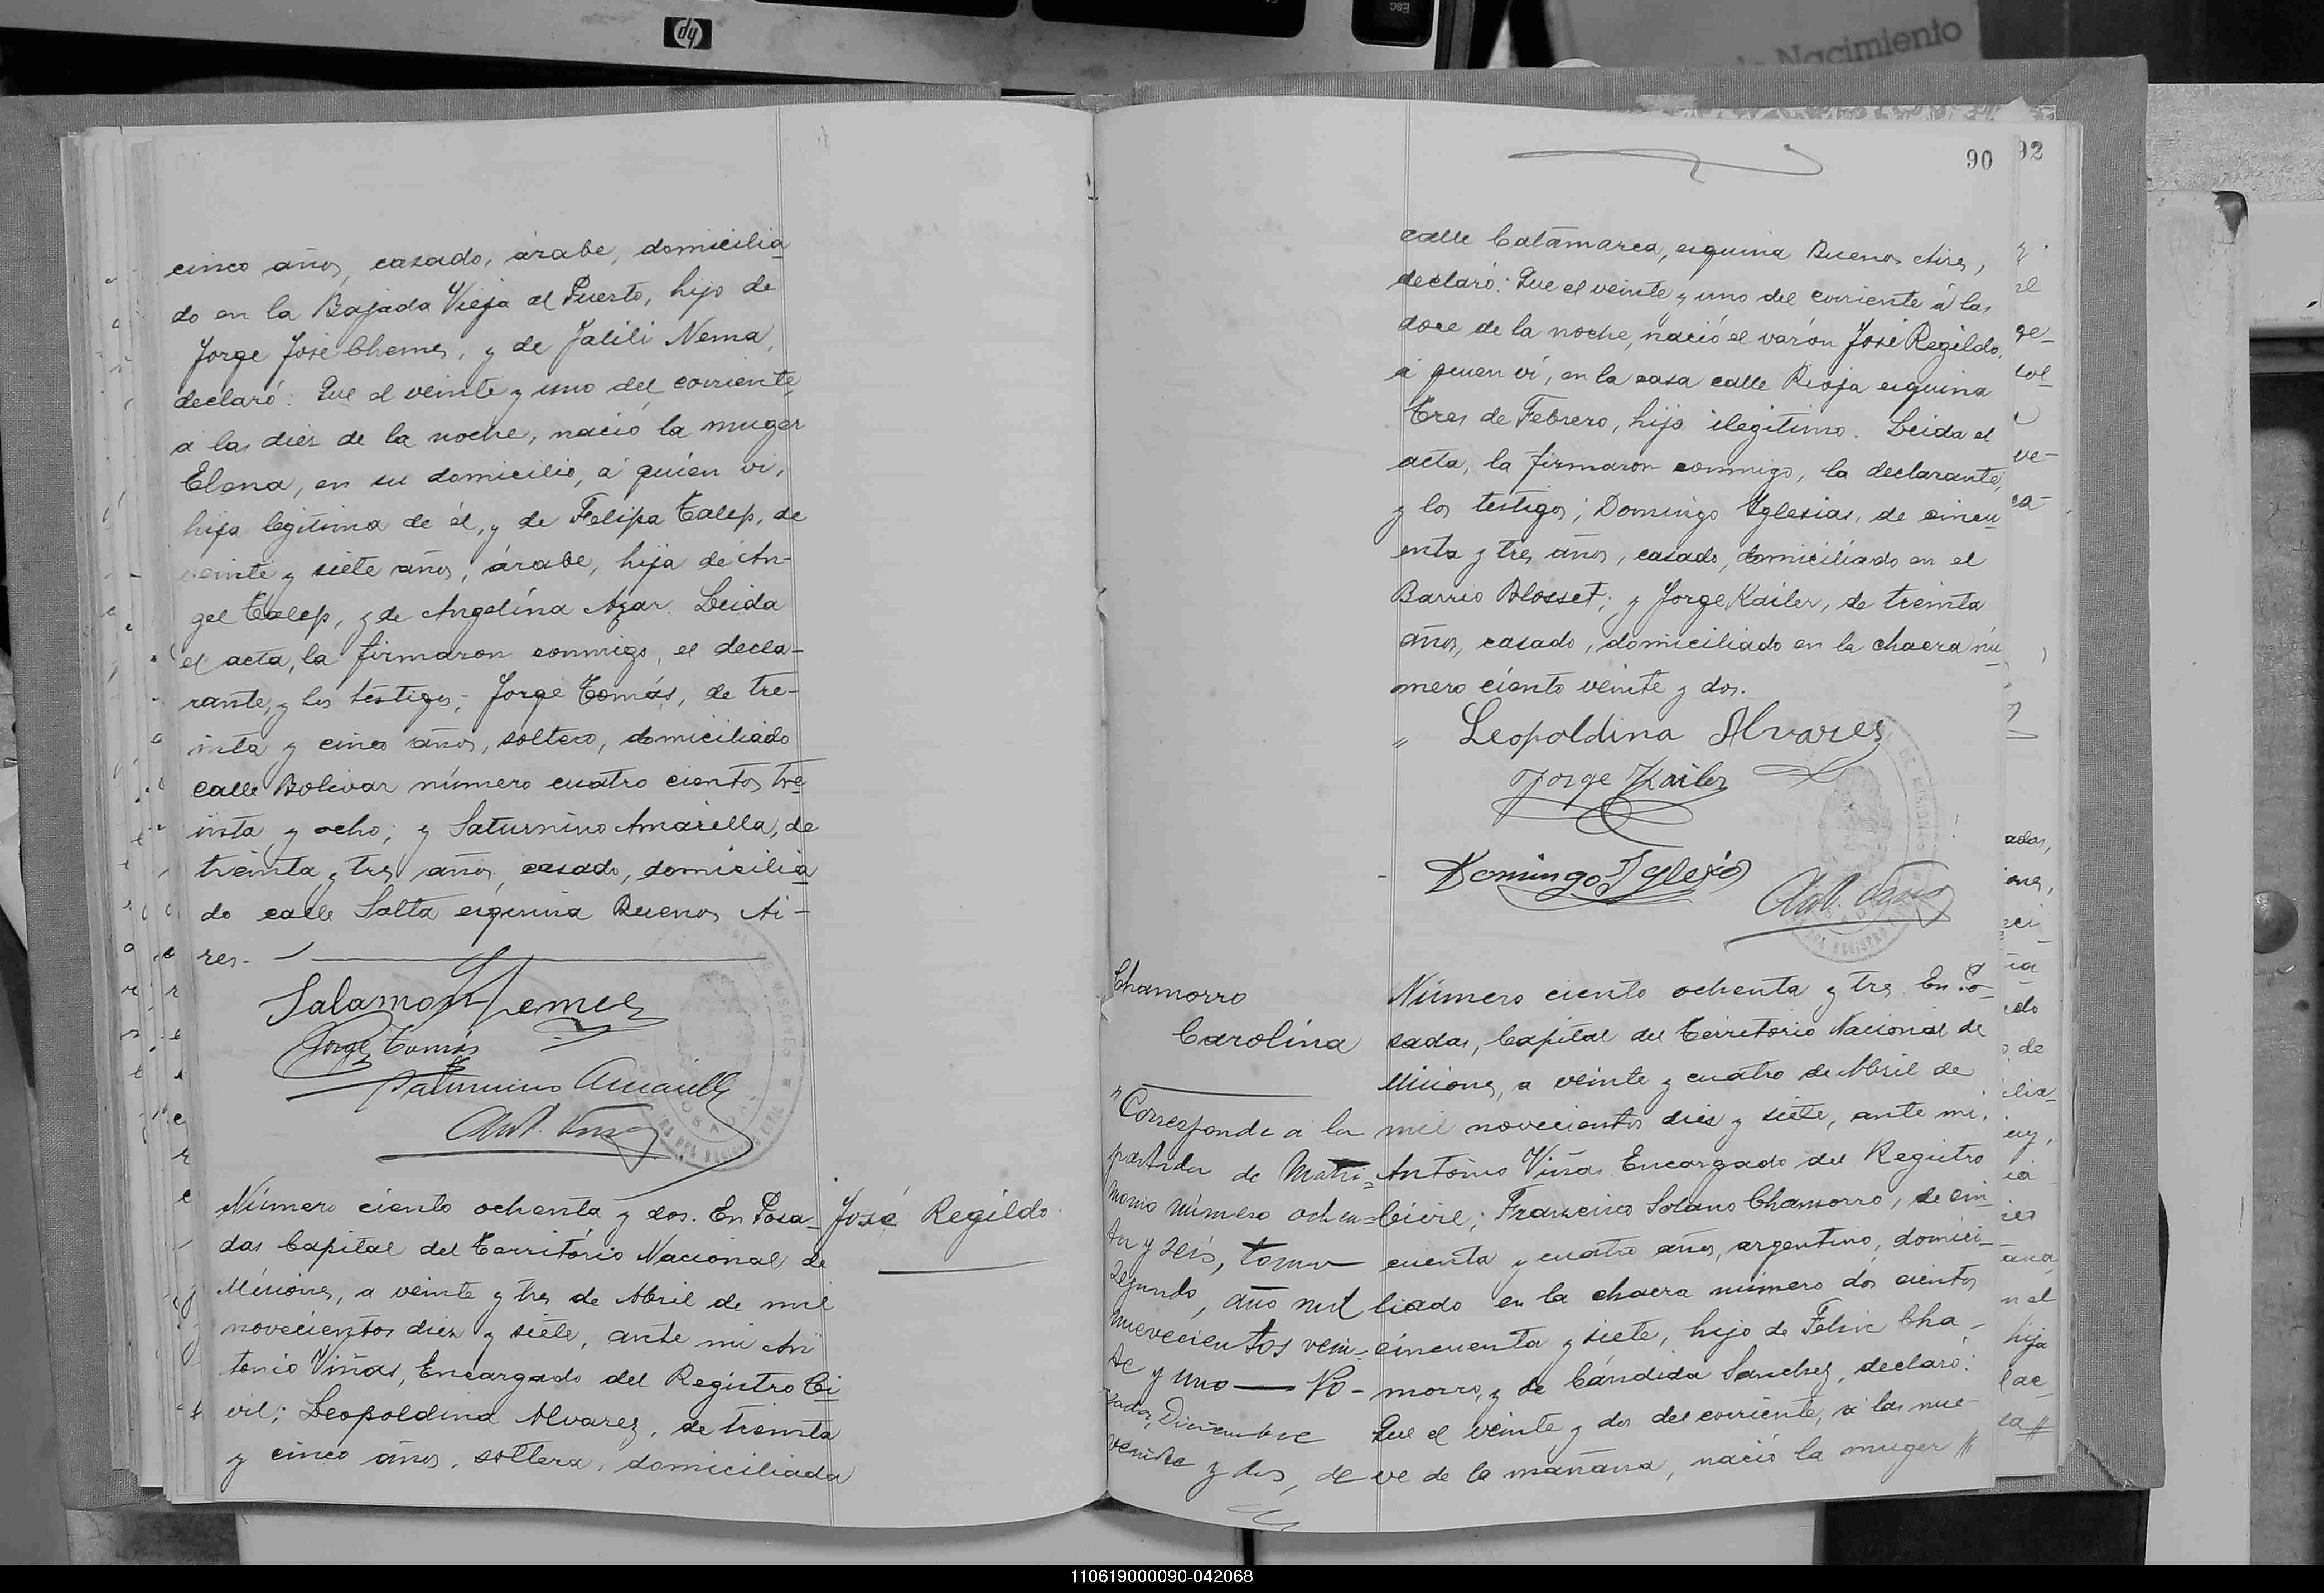 hp
Esc
de Nacimiento
cinco años, casado, árabe, domicilia
do en la Bajada Vieja al Puerto, hijo de
Jorge José Chemes, y de Jalili Nema,
declaró: Que el veinte y uno del corriente
a las diez de la noche, nació la muger
Elena, en su domicilio, a quien vi,
hija legitima de él, y de Felipa Talep, de
veinte y siete años, árabe, hija de An-
gel Talep, y de Angelina Azar. Leida
el acta, la firmaron conmigo, el decla-
rante, y los testigos; Jorge Tomás, de tre-
inta y cinco años, soltero, domiciliado
calle Bolivar número cuatro cientos tre
inta y ocho; y Saturnino Amarilla, de
treinta y tres años, casado, domicilia
do calle Salta esquina Buenos Ai-
res.
Salamon Jemes
Jorge Tomás
Saturnino Amarilla
Ant. Viñas
Número ciento ochenta y dos. En Posa-
das Capital del Territorio Nacional de
Misiones, a veinte y tres de Abril de mil
novecientos diez y siete, ante mi An
tonio Viñas, Encargado del Registro Ci
vil; Leopoldina Alvarez, de treinta
y cinco años, soltera, domiciliada
José Regildo
90
92
calle Catamarca, esquina Buenos Aires,
declaró: Que el veinte y uno del corriente á las
doce de la noche, nació el varón José Regildo,
á quien vi, en la casa calle Rioja esquina
Tres de Febrero, hijo ilegitimo. Leida el
acta, la firmaron conmigo, la declarante,
y los testigos; Domingo Yglesias, de cincu
enta y tres años, casado, domiciliado en el
Barrio Blosset; y Jorge Kailer, de treinta
años, casado, domiciliado en la chacra nú
mero ciento veinte y dos.
Leopoldina Alvares
Jorge Kailer
Domingo Yglesias
Ant. Viñas
Chamorro
Carolina
Corresponde a la
partida de Matri=
monio número ochen=
ta y seis, tomo
segundo, año mil
nuevecientos vein=
te y uno — Po-
sadas, Diciembre
veinte y dos, de
Número ciento ochenta y tres En Po-
sadas, Capital del Territorio Nacional de
Misiones, a veinte y cuatro de Abril de
mil novecientos diez y siete, ante mi,
Antonio Viñas Encargado del Registro
Civil; Francisco Solano Chamorro, de cin
cuenta y cuatro años, argentino, domici-
liado en la chacra número dos cientos
cincuenta y siete, hijo de Felix Cha-
morro, y de Cándida Sanchez, declaró:
Que el veinte y dos del corriente, a las nue-
ve de la mañana, nació la muger //
110619000090-042068